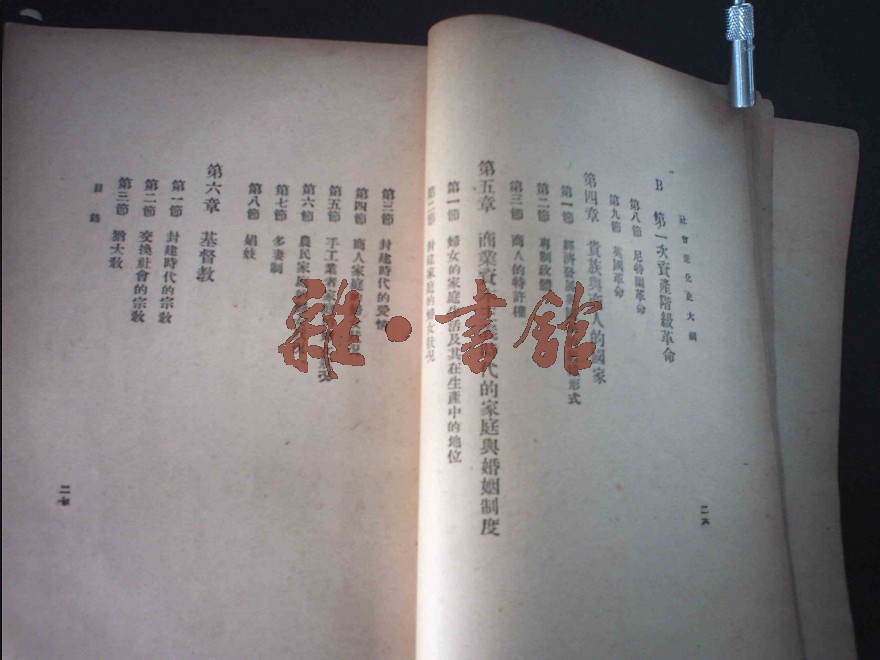 社會進化史大綱
B 第一次資產階級革命
第八節 尼特蘭革命
第九節 英國革命
第四章 貴族與商人的國家
第一節 經濟發展 形式
第二節 專制政體
第三節 商人的特許權
第五章 商業資本主義時代的家庭與婚姻制度
第一節 婦女的家庭生活及其在生產中的地位
第二節 封建家庭的婦女狀況
二六
第三節 封建時代的愛情
第四節 商人家庭 狀況
第五節 手工業者家庭 狀況
第六節 農民家庭
第七節 多妻制
第八節 娼妓
第六章 基督教
第一節 封建時代的宗教
第二節 交換社會的宗教
第三節 猶太教
目錄
二七
雜·書館